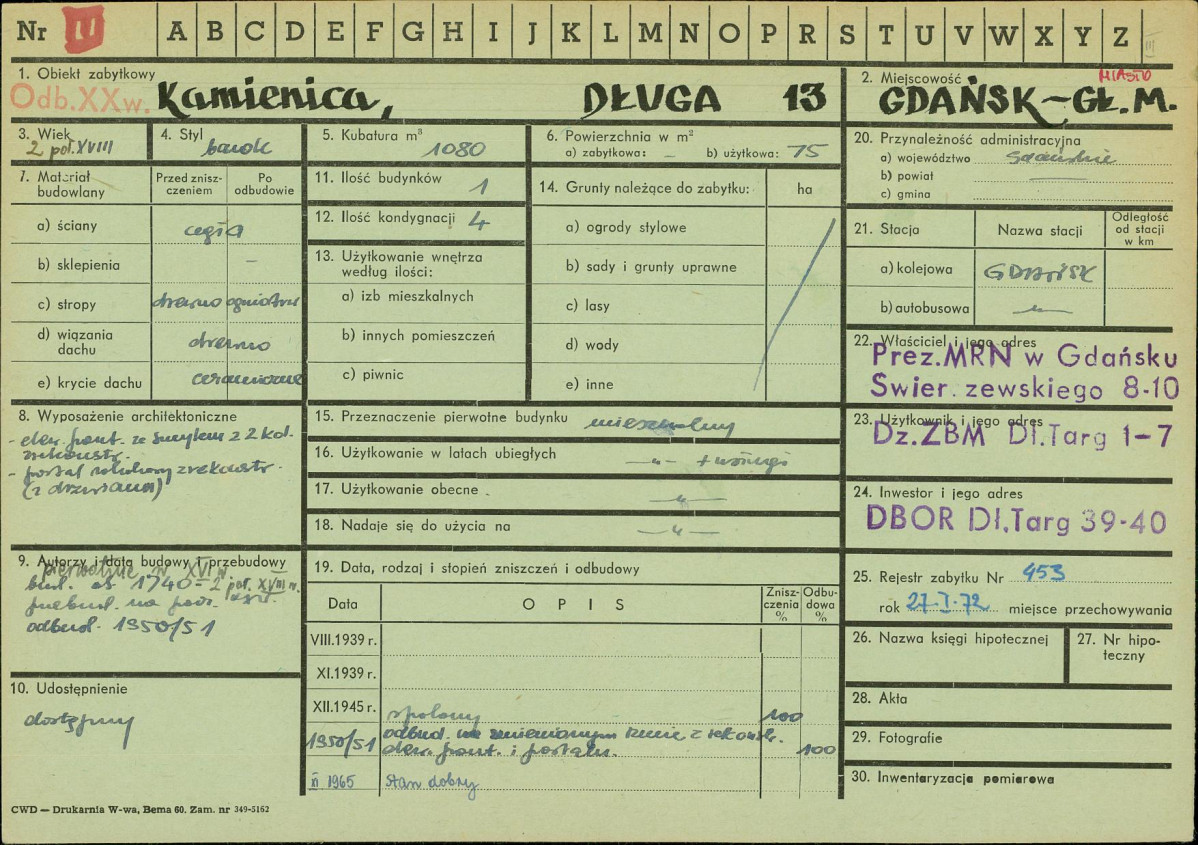 Nr II A B C D E F G H I J K L M N O P R S T U V W X Y Z III
1. Obiekt zabytkowy
Odb.XXw. Kamienica, DŁUGA 13
2. Miejscowość MIASTO
GDAŃSK-GŁ.M.
3. Wiek
2 poł. XVIII
4. Styl
barok
5. Kubatura m³
1080
6. Powierzchnia w m²
a) zabytkowa: – b) użytkowa: 75
7. Materiał budowlany
Przed zniszczeniem
Po odbudowie
a) ściany cegła
b) sklepienia –
c) stropy drewno ogniotrw
d) wiązania dachu drewno
e) krycie dachu ceramiczne
8. Wyposażenie architektoniczne
- elew. front. ze
z 2 kol.
zrekonstr.
- portal zrekonstr.
(z drzwiami)
9. Autorzy i data budowy i przebudowy
pierwotnie w XVI w
bud. ok 1740 – 2 poł. XVIII w.
przebud. na pocz.
odbud. 1950/51
10. Udostępnienie
dostępny
11. Ilość budynków 1
12. Ilość kondygnacji 4
13. Użytkowanie wnętrza
według ilości:
a) izb mieszkalnych
b) innych pomieszczeń
c) piwnic
14. Grunty należące do zabytku: ha
a) ogrody stylowe
b) sady i grunty uprawne
c) lasy
d) wody
e) inne
15. Przeznaczenie pierwotne budynku mieszkalny
16. Użytkowanie w latach ubiegłych –„– +
17. Użytkowanie obecne –„–
18. Nadaje się do użycia na –„–
19. Data, rodzaj i stopień zniszczeń i odbudowy
Data
OPIS
Zniszczenia %
Odbudowa %
VIII.1939 r.
XI.1939 r.
XII.1945 r. spalony 100
1950/51 odbud. na zmienionym rzucie z rekonstr.
elew. front. i portalu. 100
XI 1965 Stan dobry
20. Przynależność administracyjna
a) województwo Gdańskie
b) powiat
c) gmina
21. Stacja
Nazwa stacji
Odległość od stacji w km
a) kolejowa GDAŃSK
b) autobusowa –„–
22. Właściciel i jego adres
Prez.MRN w Gdańsku
Swier.zewskiego 8-10
23. Użytkownik i jego adres
Dz.ZBM Dł.Targ 1-7
24. Inwestor i jego adres
DBOR Dł.Targ 39-40
25. Rejestr zabytku Nr 453
rok 27.I.72 miejsce przechowywania
26. Nazwa księgi hipotecznej
27. Nr hipoteczny
28. Akta
29. Fotografie
30. Inwentaryzacja pomiarowa
CWD — Drukarnia W-wa, Bema 60. Zam. nr 349-5162